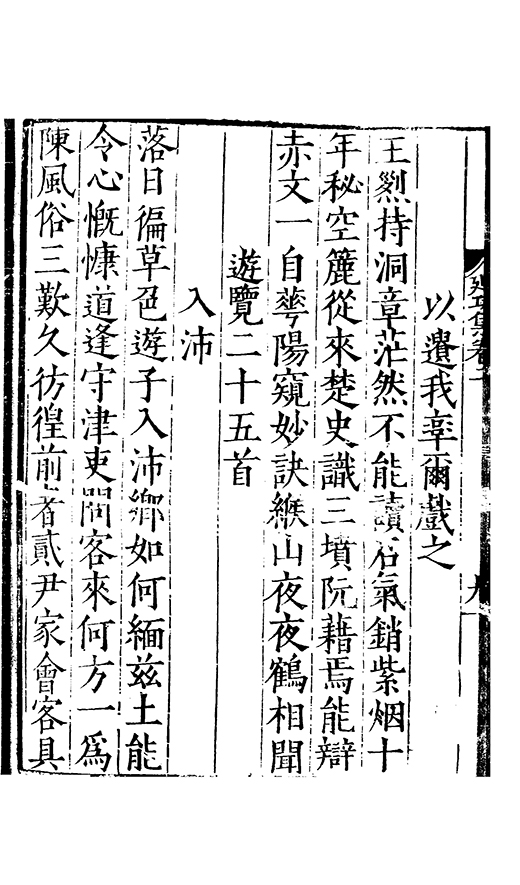 以遺我率爾戲之
王烈持洞章茫然不能讀石氣銷紫烟十
年秘空簏從來楚史識三墳阮藉焉能辯
赤文一自華陽窺妙訣緱山夜夜鶴相聞
遊覽二十五首
入沛
落日徧草色遊子入沛鄉如何緬兹土能
令心慨慷道逢守津吏問客來何方一爲
陳風俗三歎久彷徨前者貳尹家會客具